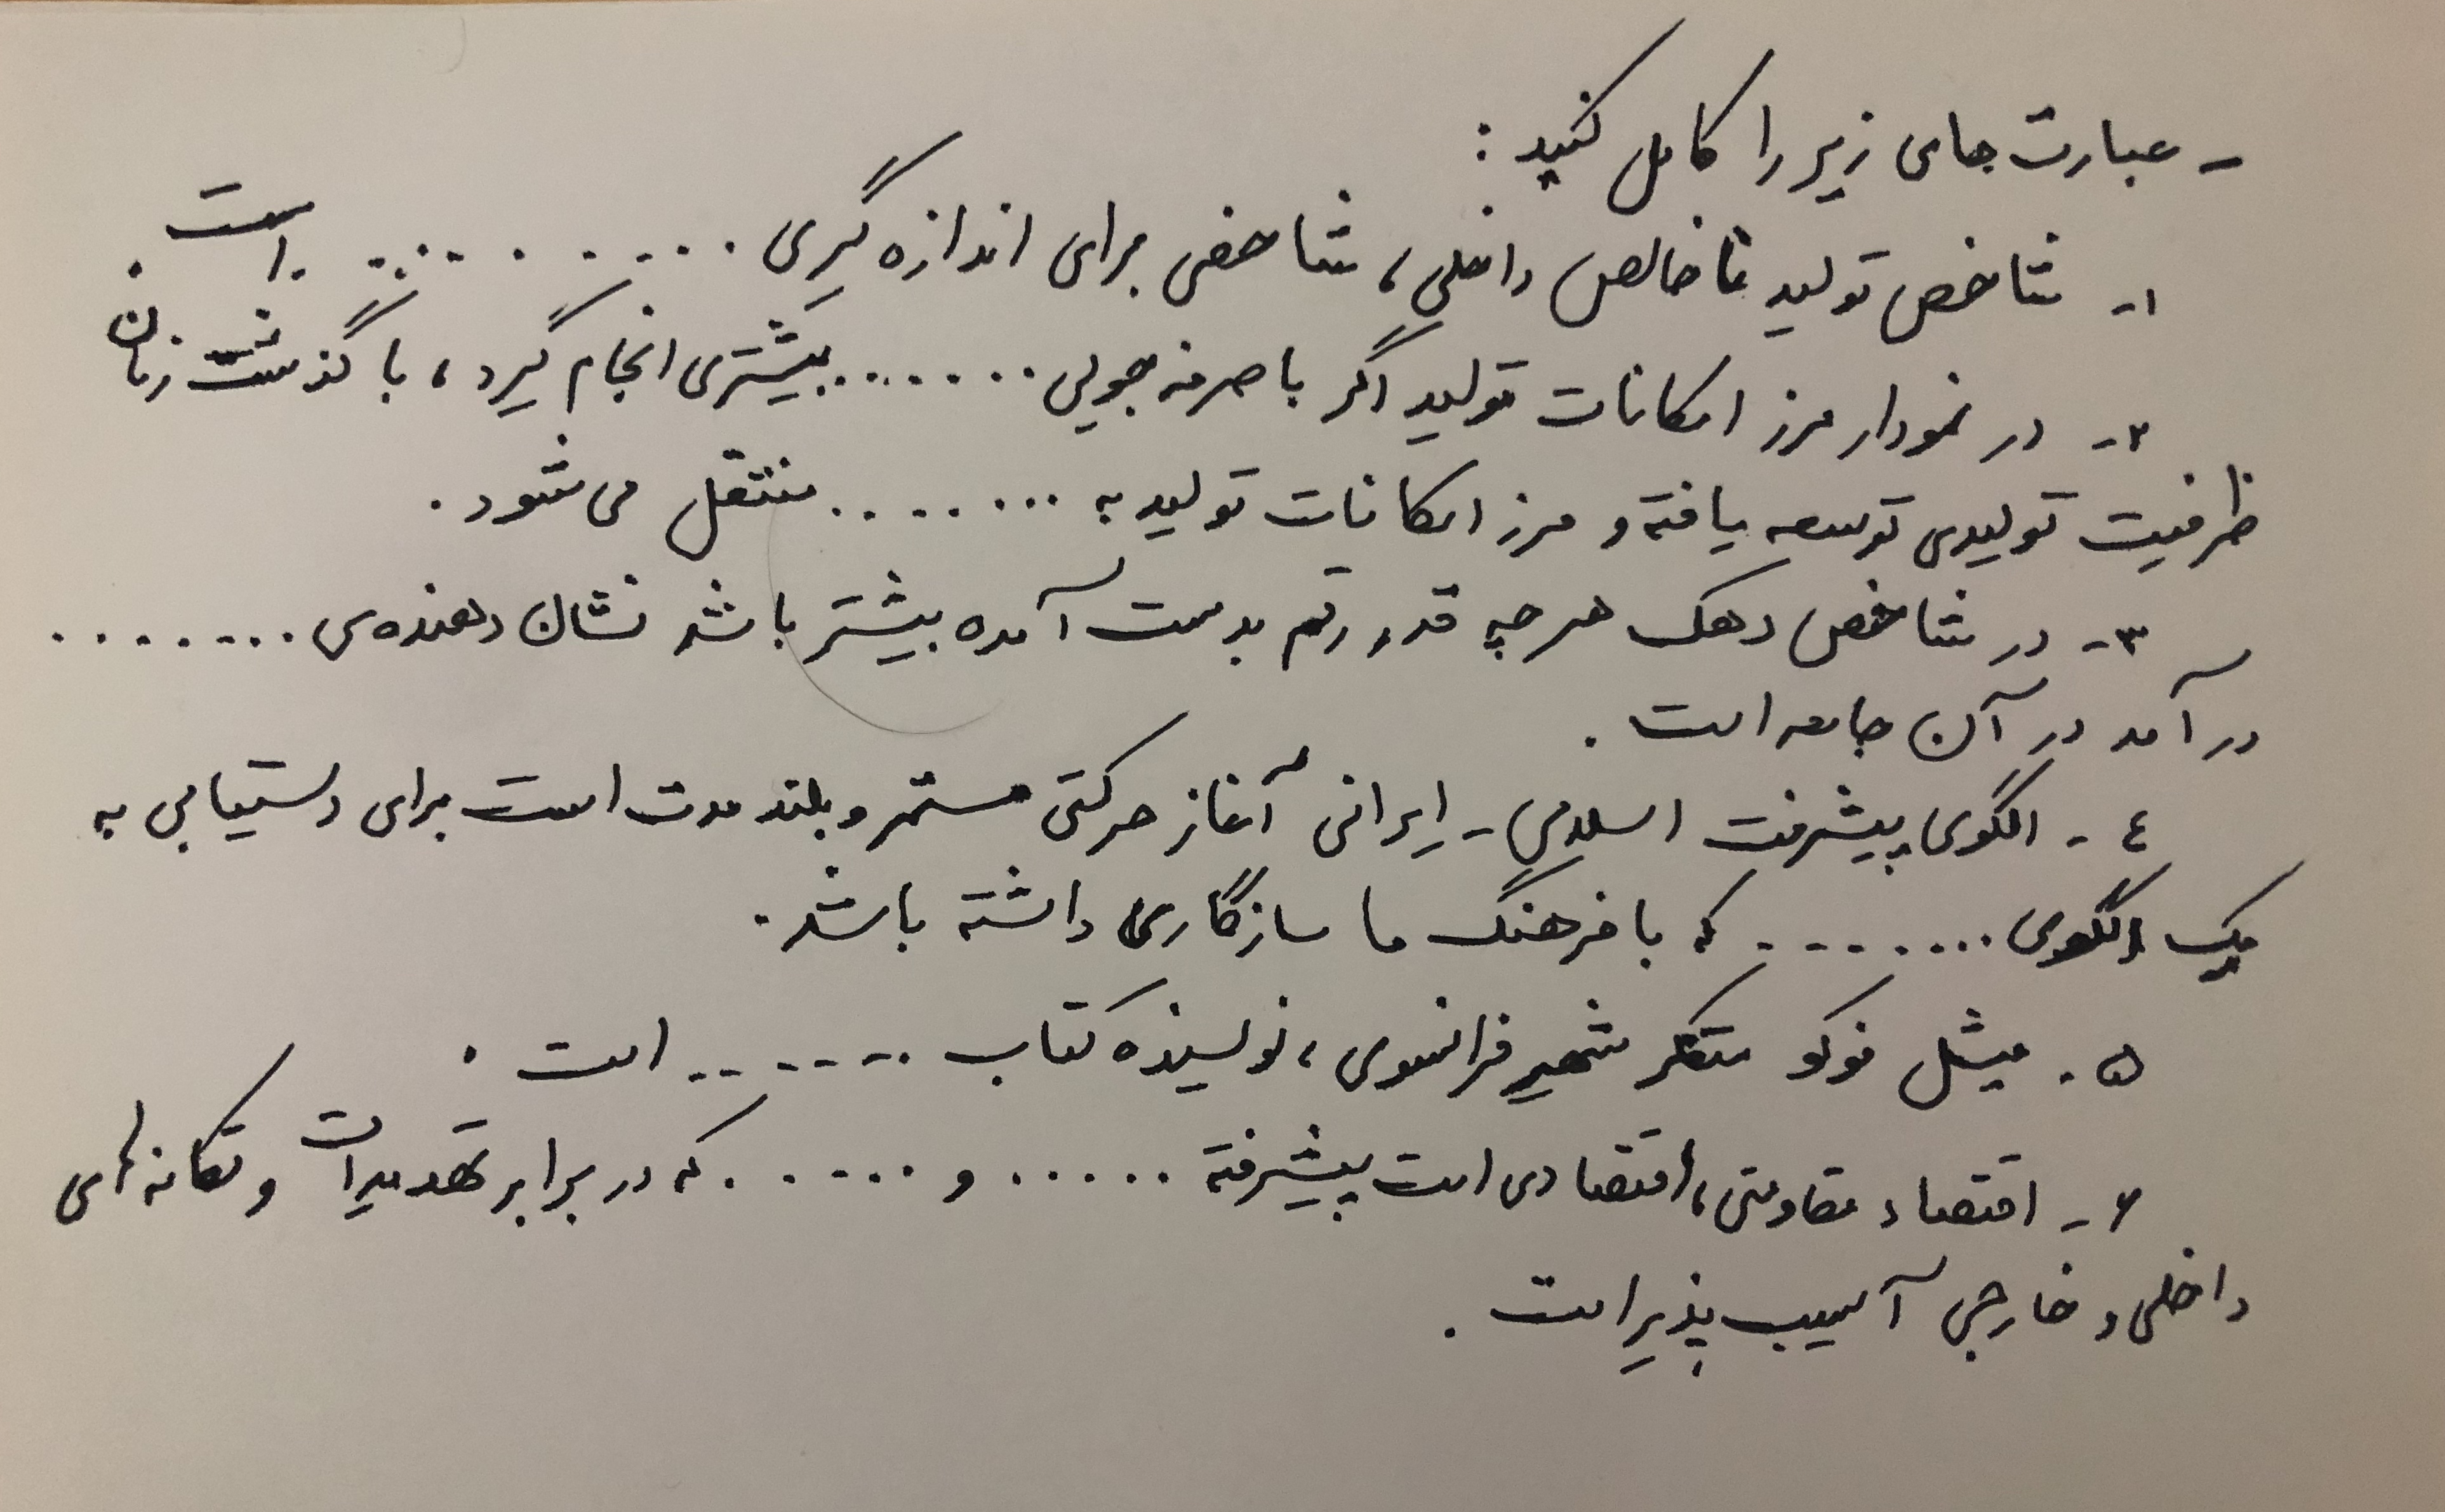 - عبارت های زیر را کامل کنید :
۱- شاخص تولید نا خالص داخلی ، شاخصی برای اندازه گیری .......... است .
۲- در نمودار مرز امکانات تولید اگر با صرفه جویی ........ بیشتری انجام گیرد ، با گذشت زمان
ظرفیت تولیدی توسعه یافته و مرز امکانات تولید به ........ منتقل می شود .
۳- در شاخص دهک هر چه قدر رقم بدست آمده بیشتر باشد نشان دهنده ی ........
در آمد در آن جامعه است .
٤- الگوی پیشرفت اسلامی - ایرانی آغاز حرکتی مستمر و بلند مدت است برای دستیابی به
یک الگوی ........ که با فرهنگ ما سازگاری داشته باشد .
۵. میشل فوکو متفکر شهیر فرانسوی ، نویسنده کتاب ........ است .
۶- اقتصاد مقاومتی ، اقتصادی است پیشرفته ..... و ..... که در برابر تهدیدات و تکانه های
داخلی و خارجی آسیب پذیر است .